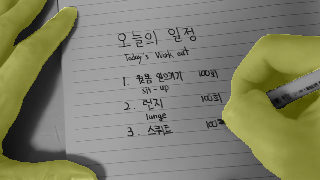 오늘의 일정
Today's Work out
1. 윗몸 일으키기 100회
sit-up
2. 런지 100회
lunge
3. 스쿼트 100